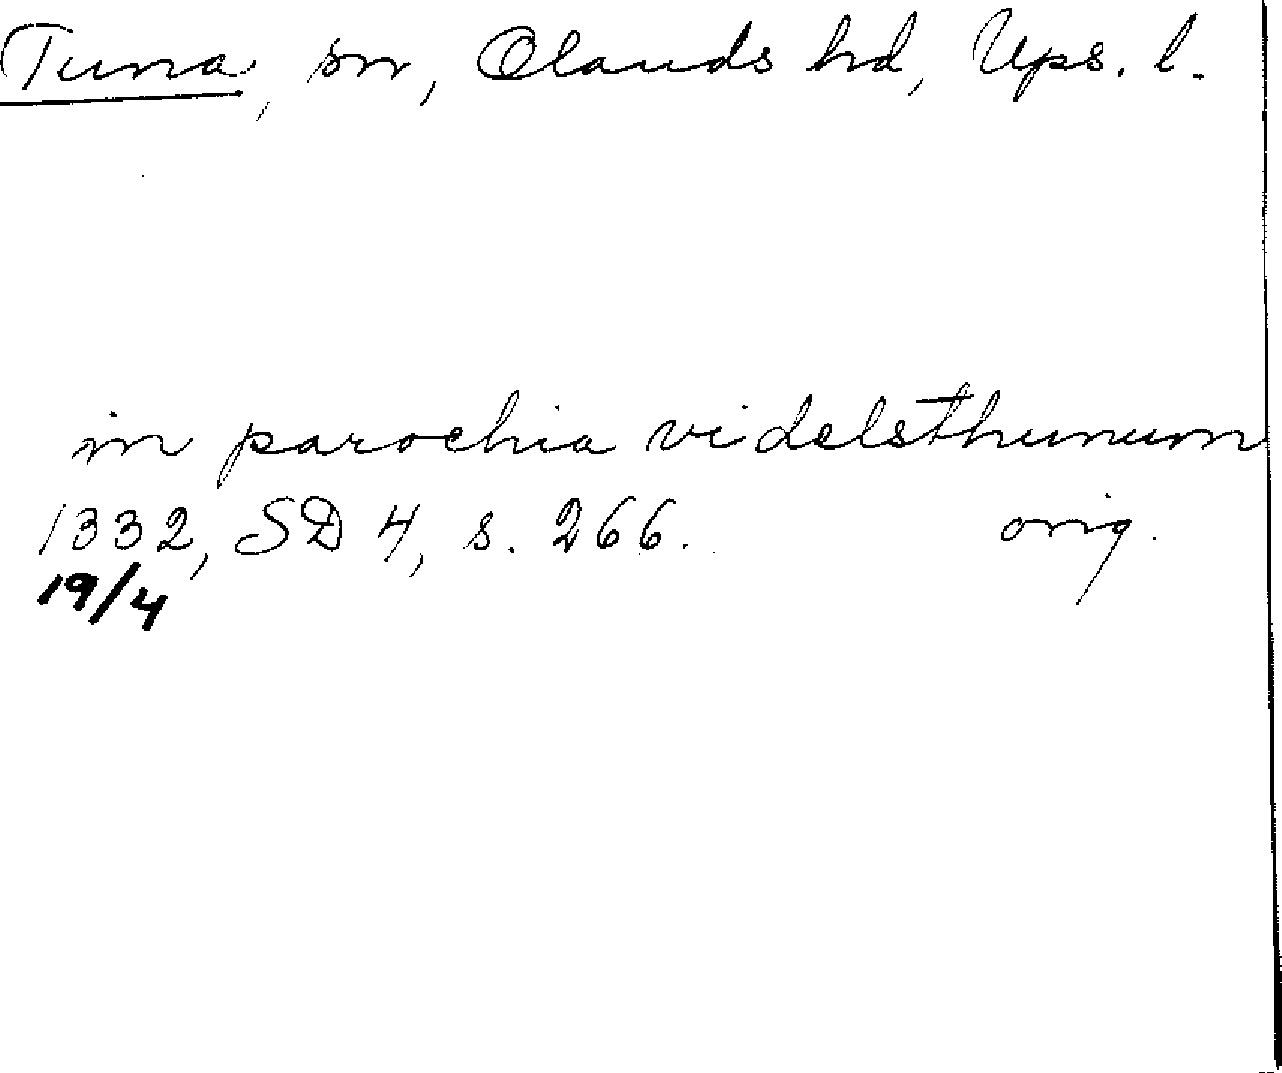 Tuna, sn, Olands hd, Ups. l.
in parochia videlsthunum
1332, SD 4, s. 266. orig.
19/4